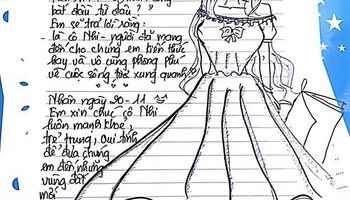 bắt đầu từ đâu ?
Em sẽ trả lời rằng:
là cô Nhi - người đã mang
đến cho chúng em kiến thức
hay và vô cùng phong phú
về cuộc sống tốt xung quanh
Nhân ngày 20-11
Em xin chúc cô Nhi
luôn mạnh khoẻ,
trẻ trung, vui tính
để đưa chúng
em đến những
vùng đất
mới